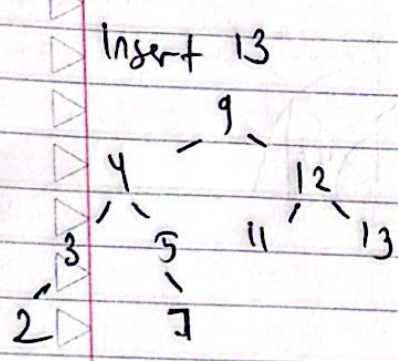 Insert 13
9
4 12
3 5 11 13
2 7